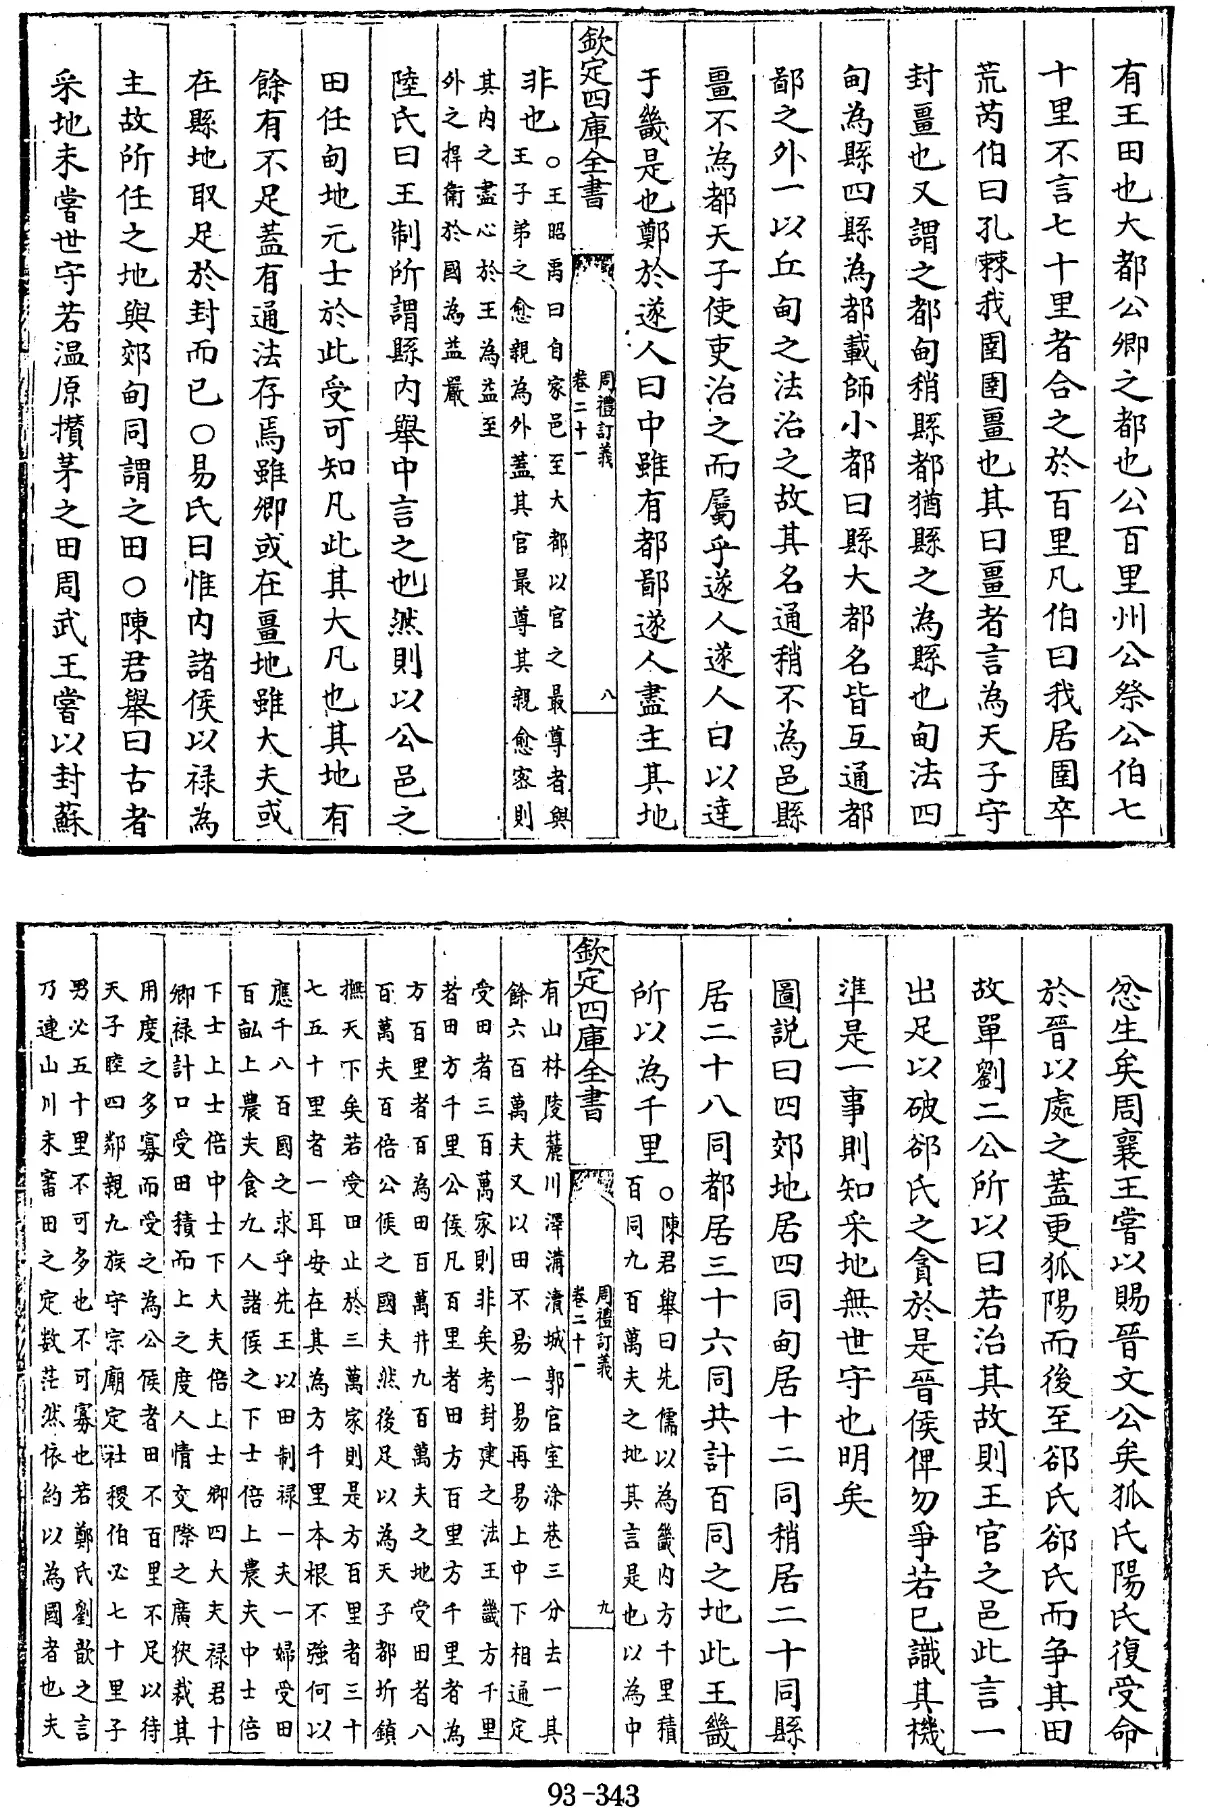 有王田也大都公卿之都也公百里州公祭公伯七
十里不言七十里者合之於百里凡伯曰我居圉卒
荒芮伯曰孔棘我圉圉疆也其曰疆者言為天子守
封疆也又謂之都甸稍縣都猶縣之為縣也甸法四
甸為縣四縣為都載師小都曰縣大都名皆互通都
鄙之外一以丘甸之法治之故其名通稍不為邑縣
畺不為都天子使吏治之而屬乎遂人遂人曰以達
于畿是也鄭於遂人曰中雖有都鄙遂人盡主其地
欽定四庫全書
周禮訂義
卷二十一
八
非也○王昭禹曰自家邑至大都以官之最尊者與
王子弟之愈親為外蓋其官最尊其親愈密則
其内之盡心於王為益至
外之捍衛於國為益嚴
陸氏曰王制所謂縣内舉中言之也然則以公邑之
田任甸地元士於此受可知凡此其大凡也其地有
餘有不足蓋有通法存焉雖卿或在畺地雖大夫或
在縣地取足於封而已○易氏曰惟内諸侯以禄為
主故所任之地與郊甸同謂之田○陳君舉曰古者
采地未嘗世守若温原攢茅之田周武王嘗以封蘇
忿生矣周襄王嘗以賜晉文公矣狐氏陽氏復受命
於晉以處之蓋更狐陽而後至郤氏郤氏而争其田
故單劉二公所以曰若治其故則王官之邑此言一
出足以破郤氏之貪於是晉侯俾勿爭若已識其機
準是一事則知采地無世守也明矣
圖說曰四郊地居四同甸居十二同稍居二十同縣
居二十八同都居三十六同共計百同之地此王畿
所以為千里○陳君舉曰先儒以為畿内方千里積
百同九百萬夫之地其言是也以為中
欽定四庫全書
周禮訂義
卷二十一
九
有山林陵麓川澤溝瀆城郭官室涂巷三分去一其
餘六百萬夫又以田不易一易再易上中下相通定
受田者三百萬家則非矣考封建之法王畿方千里
者田方千里公侯凡百里者田方百里方千里者為
方百里者百為田百萬井九百萬夫之地受田者八
百萬夫百倍公侯之國夫然後足以為天子都圻鎮
撫天下矣若受田止於三萬家則是方百里者三十
七五十里者一耳安在其為方千里本根不強何以
應千八百國之求乎先王以田制禄一夫一婦受田
百畝上農夫食九人諸侯之下士倍上農夫中士倍
下士上士倍中士下大夫倍上士卿四大夫禄君十
卿禄計口受田積而上之度人情交際之廣狹裁其
用度之多寡而受之為公侯者田不百里不足以待
天子睦四鄰親九族守宗廟定社稷伯必七十里子
男必五十里不可多也不可寡也若鄭氏劉歆之言
乃連山川未審田之定數茫然依約以為國者也夫
93-343